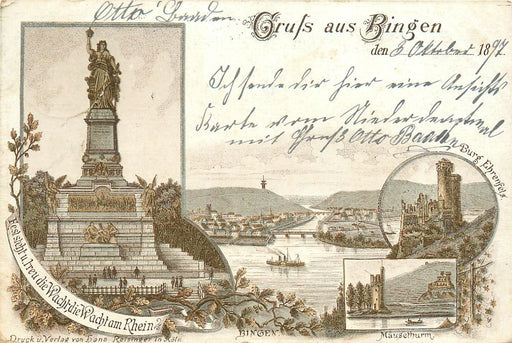 Otto Baaden
Gruß aus Bingen
den 6 Oktober 1897
Ich sende dir hier eine Ansichts
Karte vom Niederdenkmal
mit Gruß Otto Baaden
Burg Ehrenfels
Fest steht u. treu die Wacht, die Wacht am Rhein
BINGEN
Mäusethurm.
Druck u. Verlag von Hans Reisinger in Köln